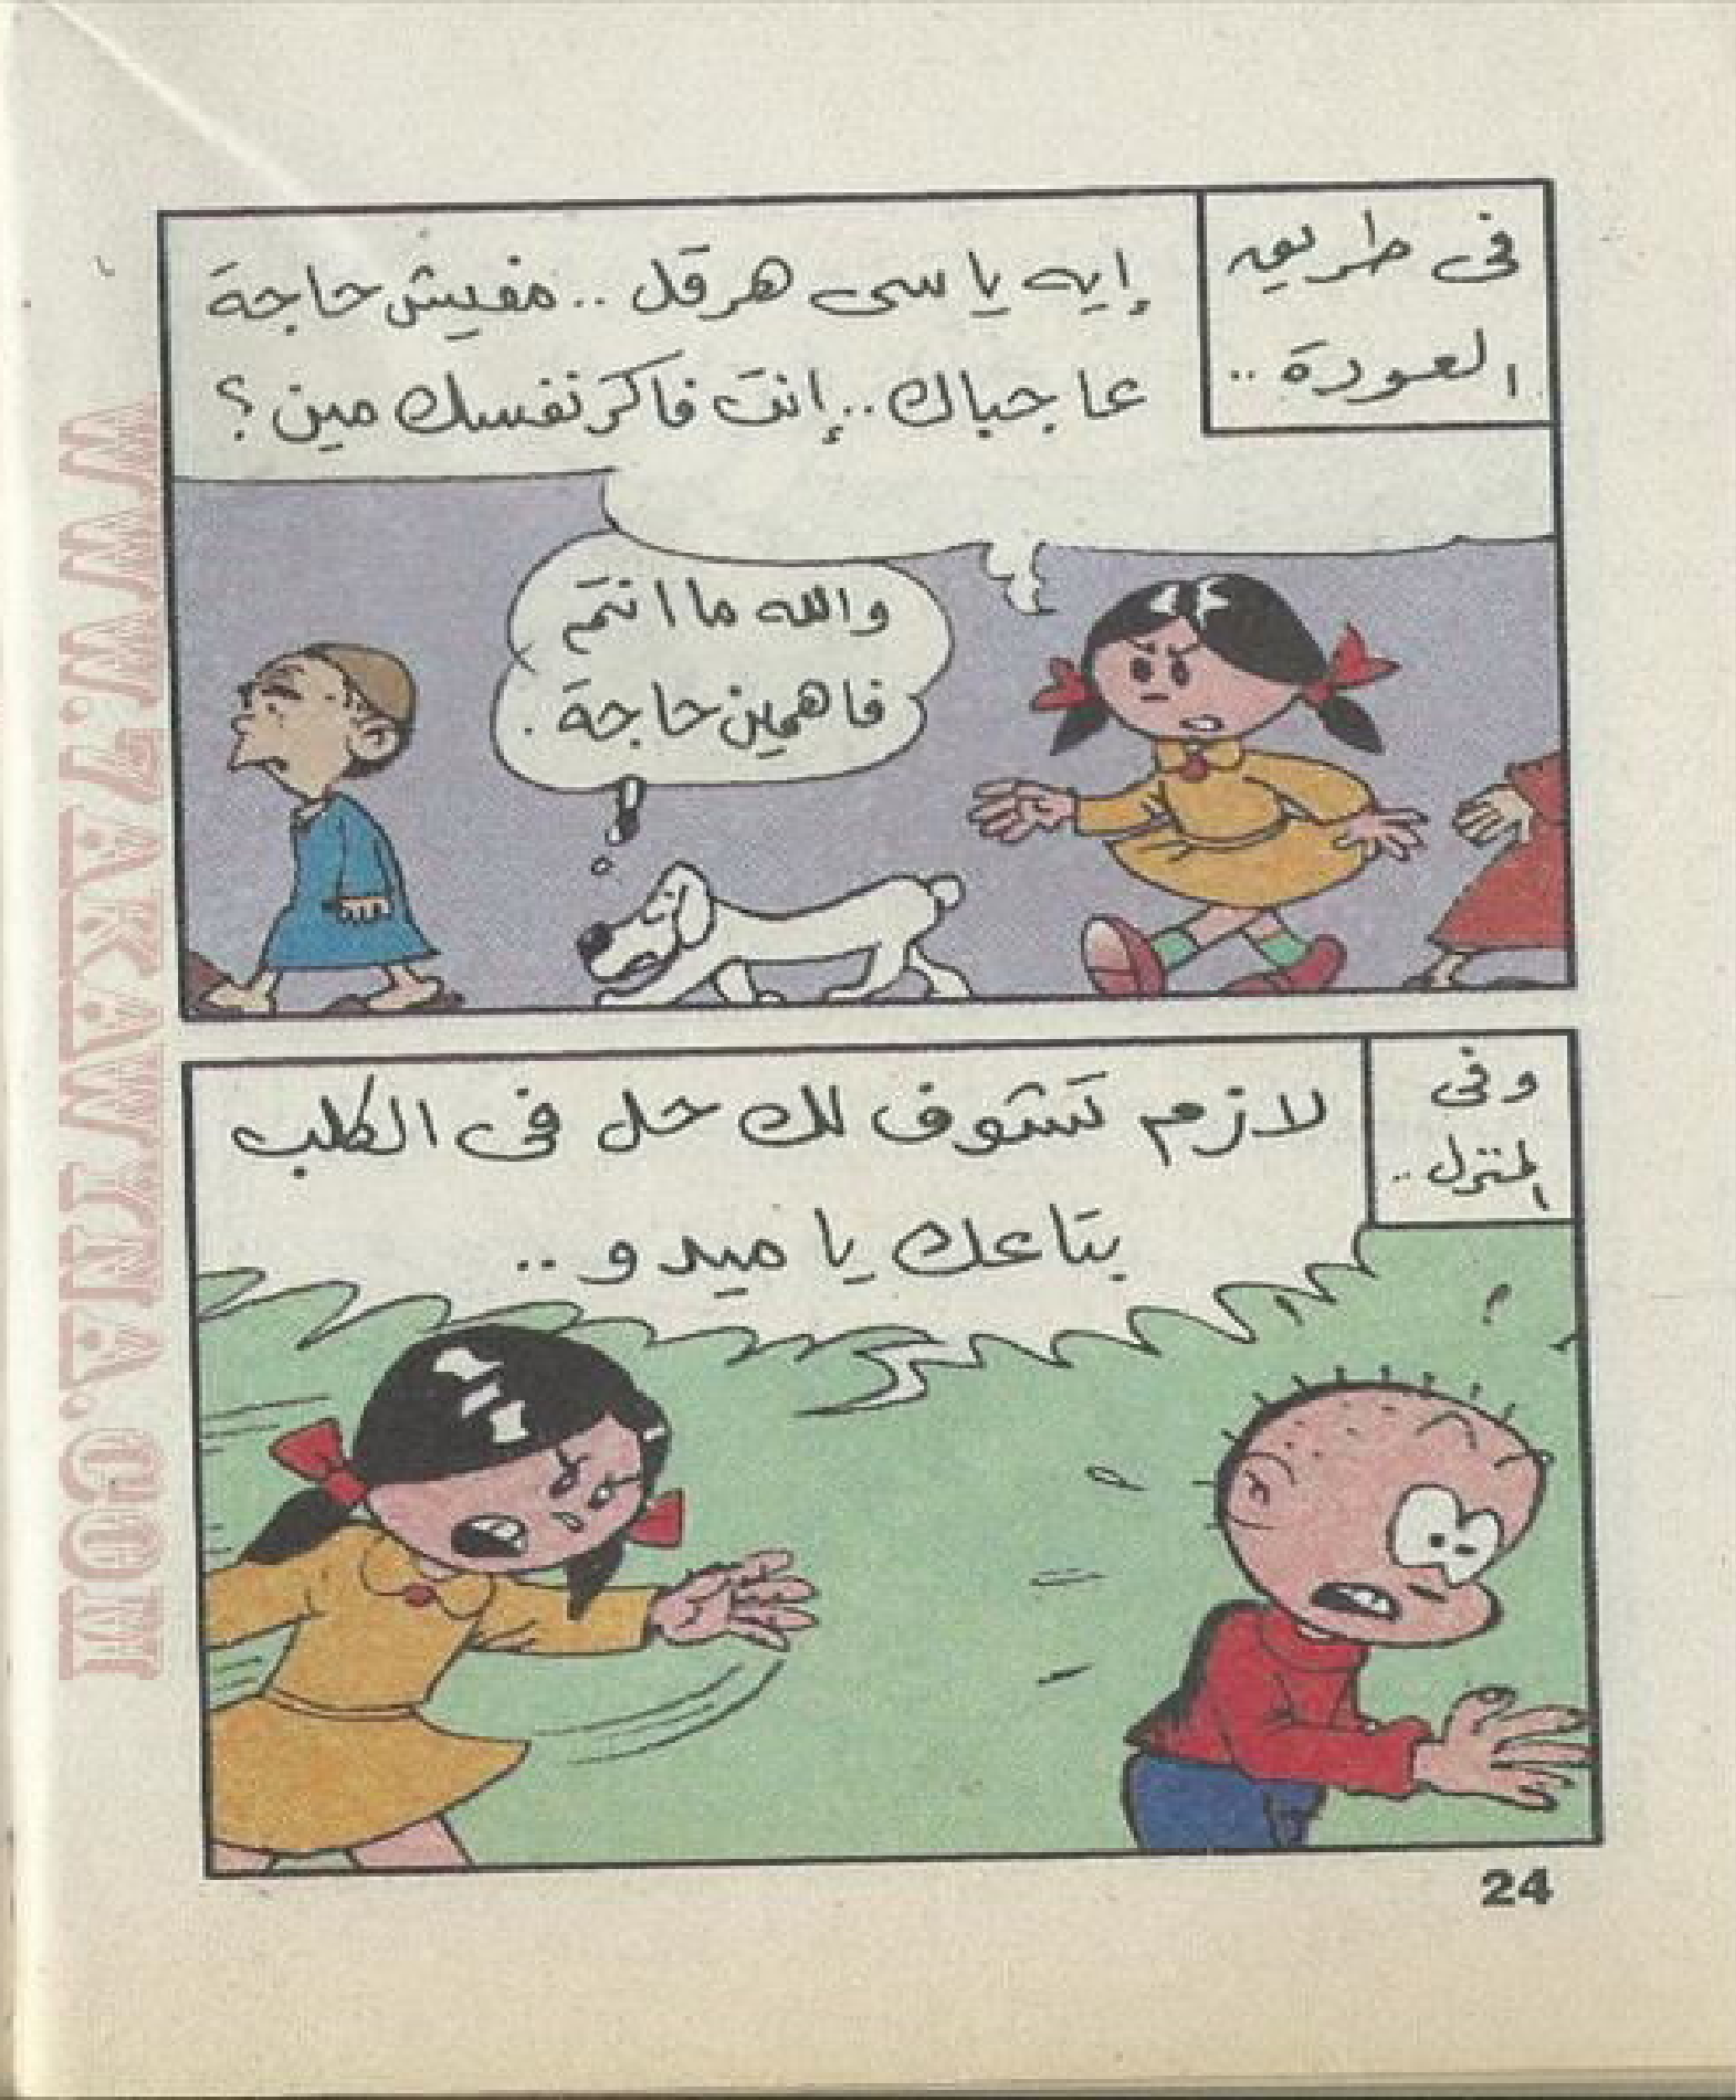 فى طريق
العودة ..
إيه يا سى هرقل .. مفيش حاجة
عاجباك .. إنت فاكر نفسك مين ؟
والله ما انتم
فاهمين حاجة .
وفى
المنزل ..
لازم تشوف لك حل فى الكلب
بتاعك يا ميدو ..
24
WWW.TARAWTNA.COM